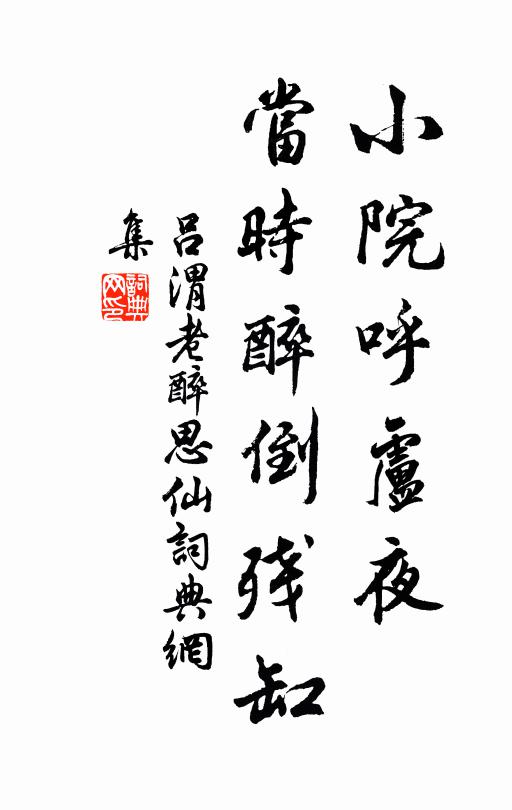 小院呼盧夜
當時醉倒残缸
吕渭老醉思仙詞典網
集
詞典网印